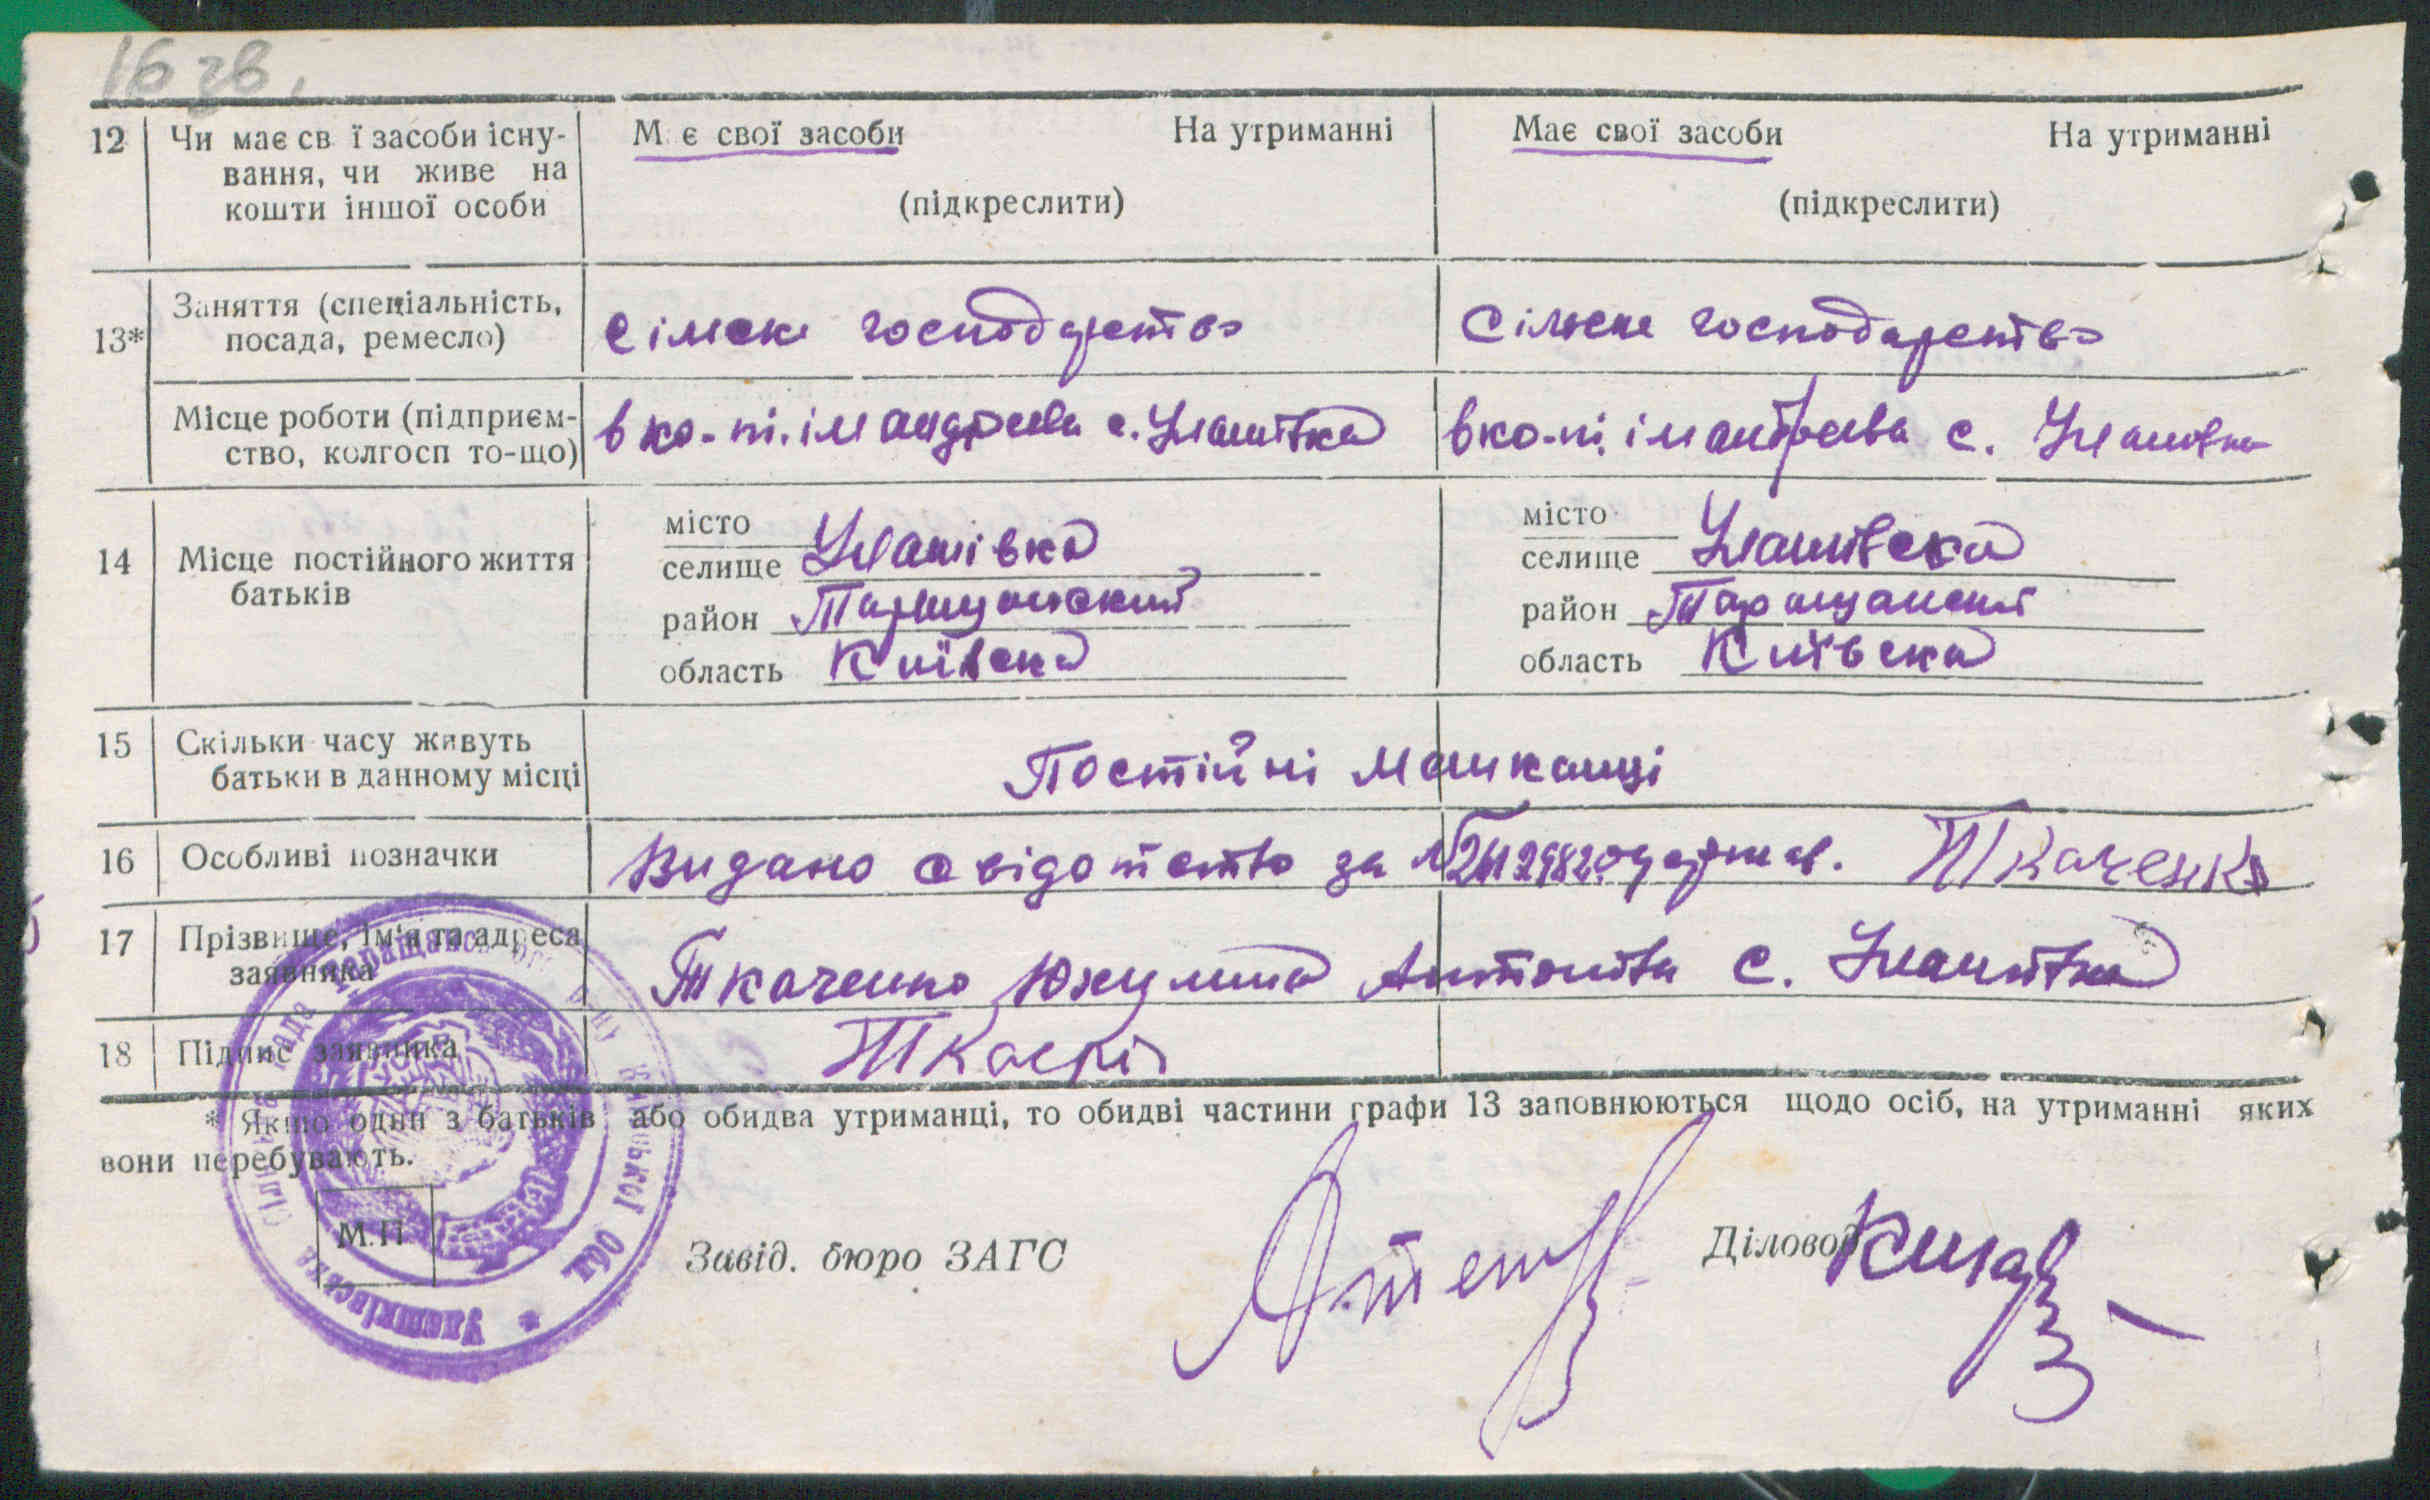 16 зв.
12 Чи має св ї засоби існу- М є свої засоби На утриманні Має свої засоби На утриманні
вання, чи живе на
кошти іншої особи (підкреслити) (підкреслити)
13* Заняття (спеціальність,
посада, ремесло) сілске господарство сілске господарство
Місце роботи (підприєм- в ко-пі. ім андреева с. Улашівка в ко-пі. ім андреева с. Улашівка
ство, колгосп то-що)
14 Місце постійного життя
батьків
місто місто
селище Улашівка селище Улашівска
район Таращанский район Таращанский
область Київска область Київска
15 Скільки часу живуть
батьки в данному місці Постійні мешканці
16 Особливі позначки Видано свідотство за № одержав. Ткаченко
17 Прізвище, ім'я та адреса
заявника Ткаченко Антонівна с. Улашівка
18 Підпис заявника
* Якшо один з батьків або обидва утриманці, то обидві частини графи 13 заповнюються щодо осіб, на утриманні яких
вони перебувають.
М.П
Завід. бюро ЗАГС Діловод
Улашківська сільська рада Таращанського р-ну Київської обл.